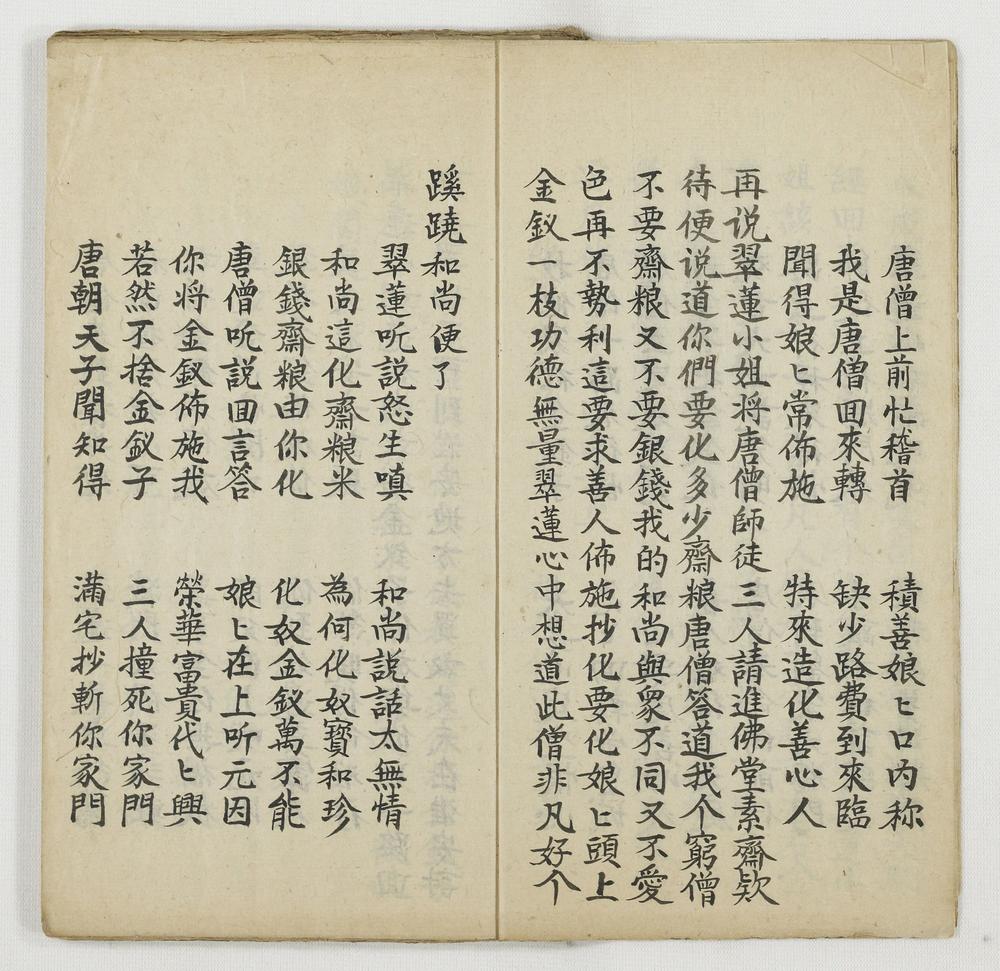 唐僧上前忙稽首　積善娘〻口内称
我是唐僧回來轉　缺少路費到來臨
聞得娘〻常佈施　特來造化善心人
再说翠蓮小姐将唐僧師徒三人請進佛堂素齋欵
待便说道你們要化多少齋粮唐僧答道我个窮僧
不要齋粮又不要銀錢我的和尚與衆不同又不愛
色再不勢利這要求善人佈施抄化要化娘〻頭上
金釵一枝功德無量翠蓮心中想道此僧非凡好个
蹊蹺和尚便了
翠蓮听説怒生嗔　和尚説話太無情
和尚這化齋粮米　為何化奴寶和珍
銀錢齋粮由你化　化奴金釵萬不能
唐僧听説回言答　娘〻在上听元因
你将金釵佈施我　榮華富貴代〻興
若然不捨金釵子　三人撞死你家門
唐朝天子聞知得　满宅抄斬你家門